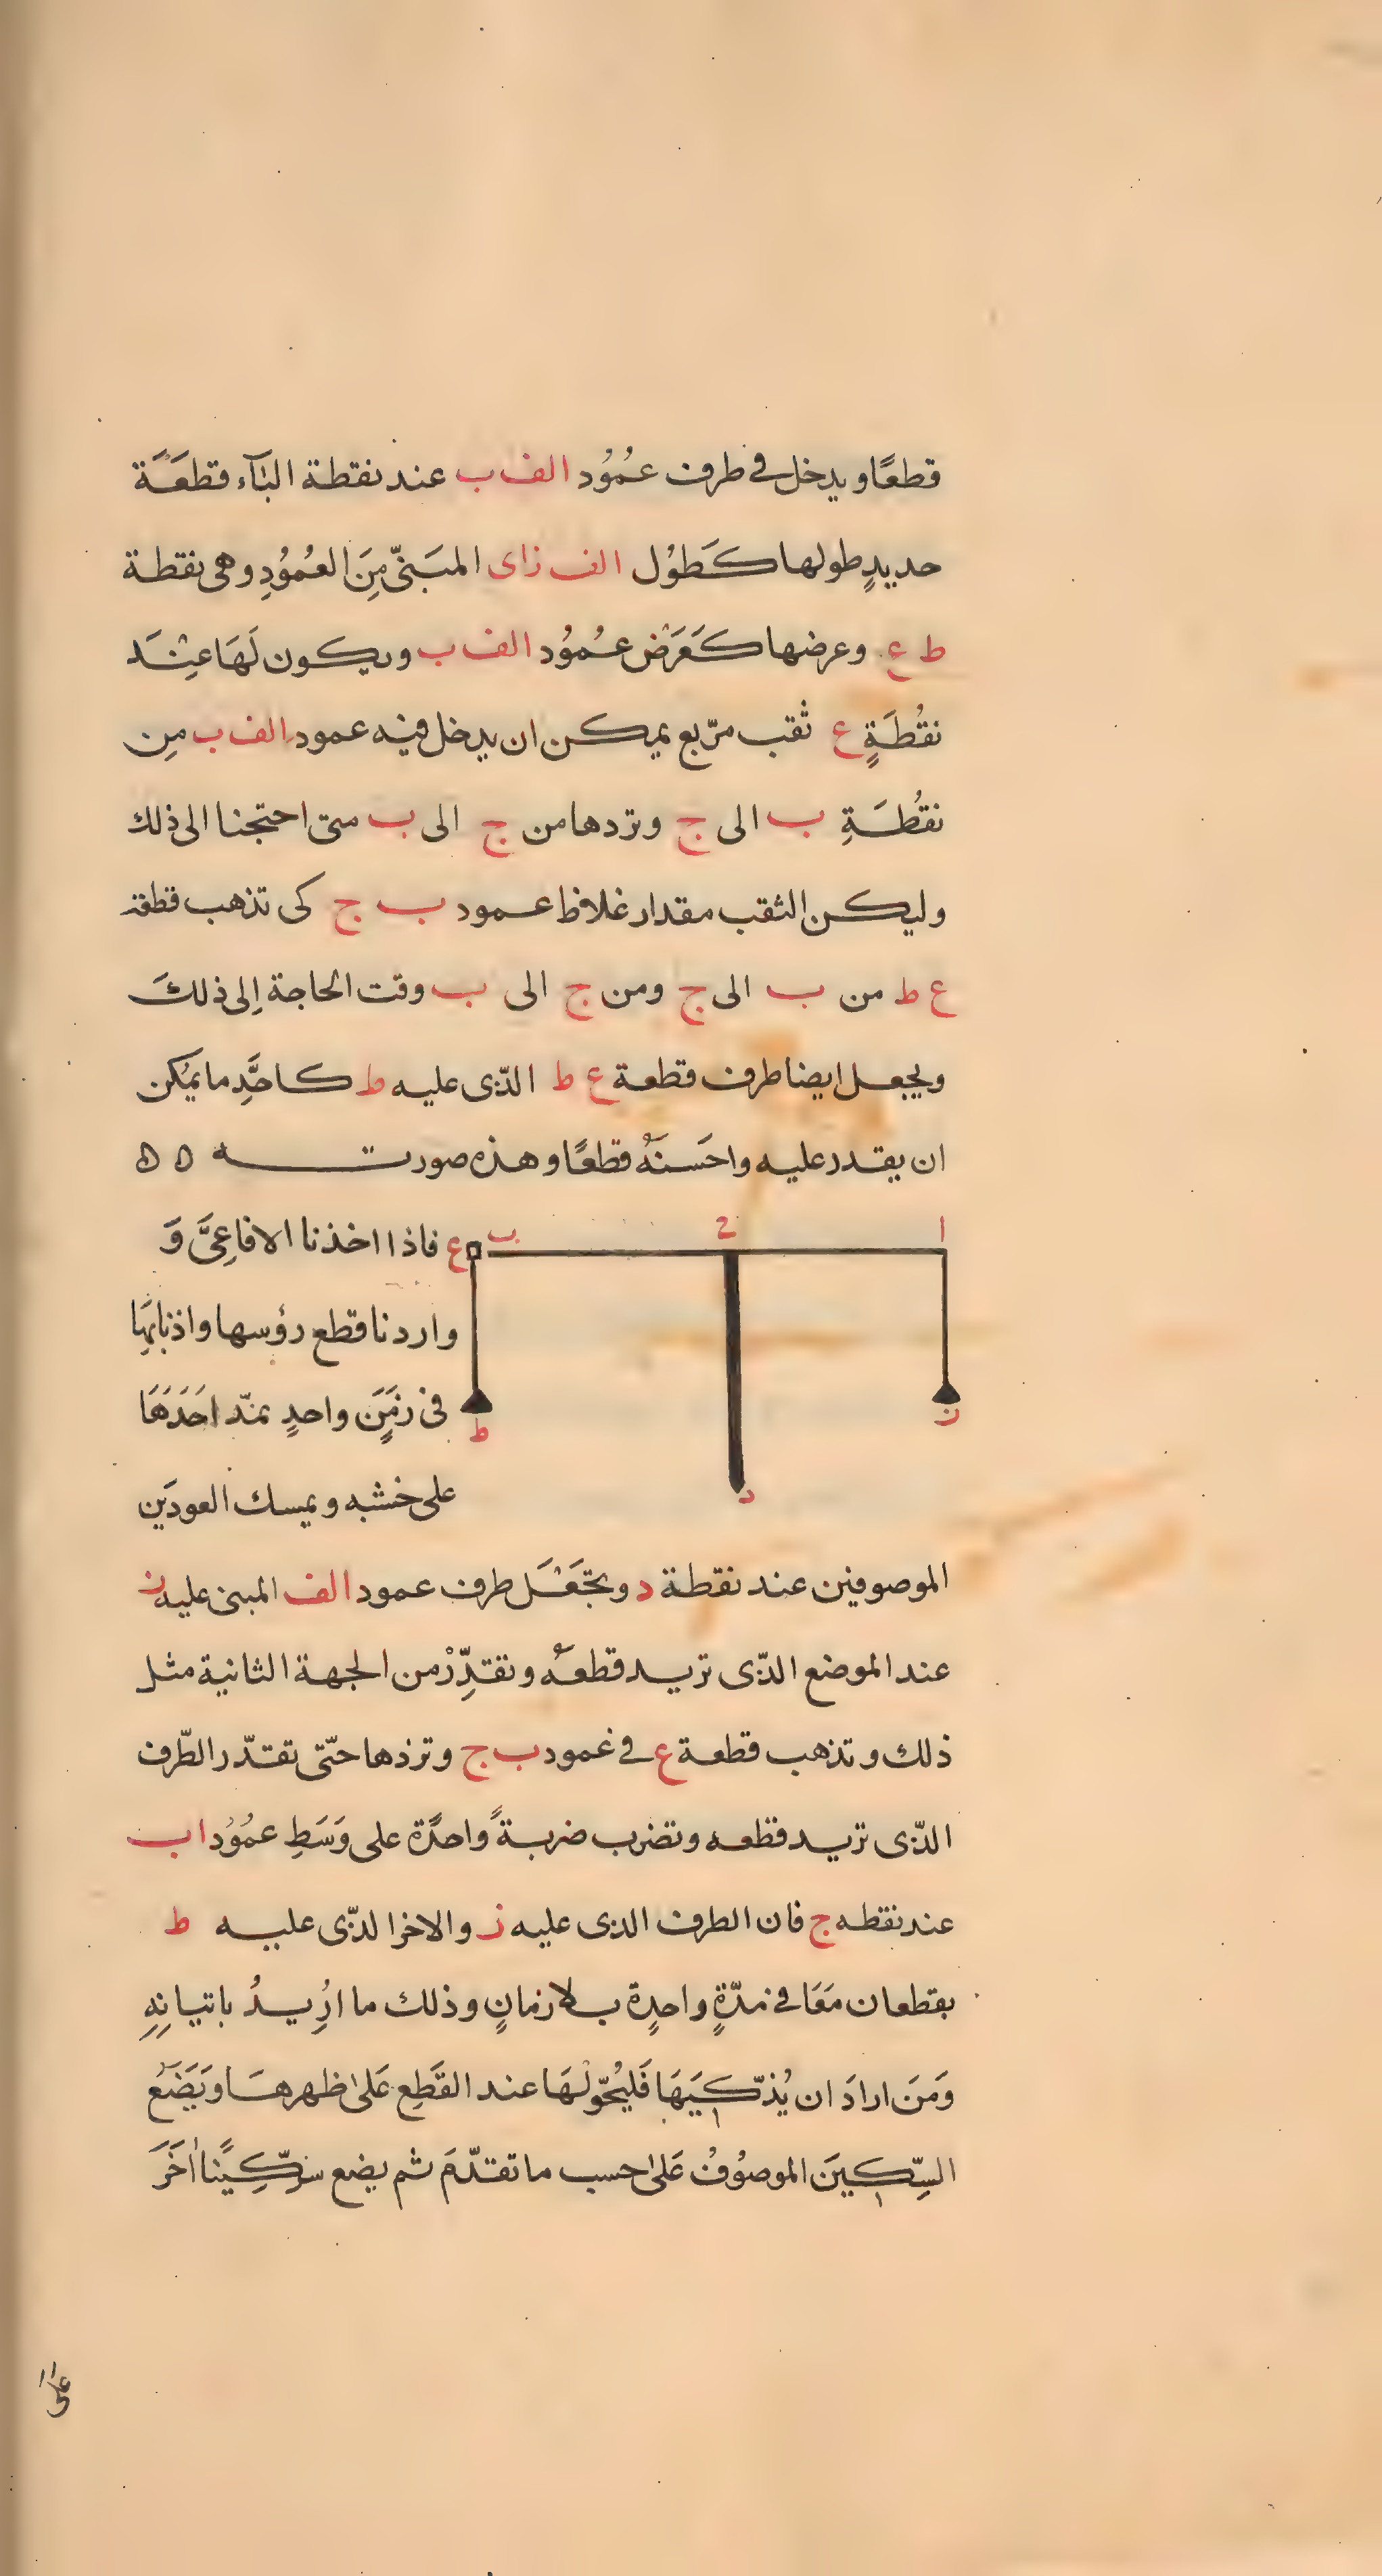 قطعًا ويدخل في طرف عمُوُد الف ب عند نقطة البَآء قطعَةَ
حديدٍ طولها كَطوُل الف زاى المبَنىّ مِنَ العُموُدِ وهى نقطة
ط ع وعرضها كعَرَض عُموُد الف ب ويكون لَهَا عِنْدَ
نقُطَةٍ ع ثقب مرّبع يمكن ان يدخل فيْه عمود الف ب مِن
نقُطَةِ ب الى ج وتردها من ج الى ب متى احتجنا الى ذلك
وليكن الثقب مقدار غلافظ عمود ب ج كى تذهب قطقة
ع ط من ب الى ج ومن ج الى ب وقت الحاجة اِلى ذلكَ
ويجعل ايضا طرف قطعة ع ط الذّى عليه ط كاحَّدِ ما يمُكن
ان يقدر عليه واحَسنَهُ قطعًا وهذه صورته ه ه
ا ج ب ع فاذا اخذنا الافاعِىَّ وَ
واردنا قطع رؤسها واذنابَهِا
فى زمَنٍَ واحدٍ نمدّ احَدَهَا
ز ط
على خشبه ويمسك العودَين
د
الموصوفين عند نقطة د ويجَعْلَ طرف عمود الف المبنى عليه ز
عند الموضع الذّى تريد قطعهُ ونقدِّرْ من الجهة الثانية مثل
ذلك وتذهب قطعة ع في غمود ب ج وترذها حتّى تقتدّر الطّرف
الذّى تريد قطعه وتضرب ضربةً واحدًة على وَسَطِ عمُوُد ا ب
عند نقطه ج فان الطرف الذى عليه ز والاخر الذّى عليه ط
بقطعان مَعَا في مدّةٍ واحدٍة بلا زمانٍ وذلك ما ارُِيدُ باتيانِهِ
وَمَن ارادَ ان يُذّكيَهَا فَليُحّولْهَا عند القَطِع عَلىٰ ظهرهَا ويَضَعَ
السِّكينَ الموصوُفُ عَلىٰ احسب ما تقدّمَ ثم يضع سّكِينًا اٰخَرَ
على